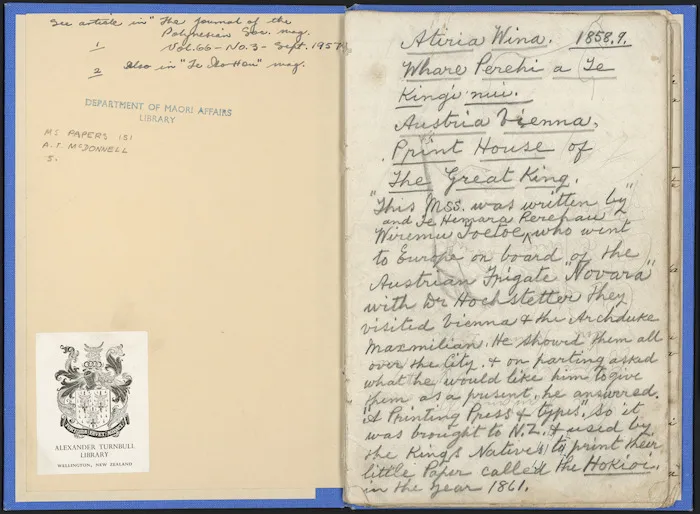 See article in "The Journal of the
Polynesian Soc. mag.
1 Vol. 66 - No. 3 - Sept. 1957
2 Also in "Te Ao Hou" mag.
DEPARTMENT OF MAORI AFFAIRS
LIBRARY
MS PAPERS 151
A.F. McDONNELL
5.
ALEXANDER TURNBULL
LIBRARY
WELLINGTON, NEW ZEALAND
Atiria Wina. 1858.9.
Whare Perehi a Te
Kingi nui.
Austria Vienna.
Print House of
The Great King.
"This Mss. was written by"
and Te Hemara Rerehau
Wiremu Toetoe ‸ who went
to Europe on board of the
Austrian Frigate "Novara"
with Dr Hochstetter They
visited Vienna & the Archduke
Maxmilian. He showed them all
over the City. & on parting asked
what he would like him to give
them as a present, he answered.
"A Printing Press & types". So it
was brought to N.Z. & used by
the Kings Natives to print their
little Paper called the Hokioi.
in the year 1861.